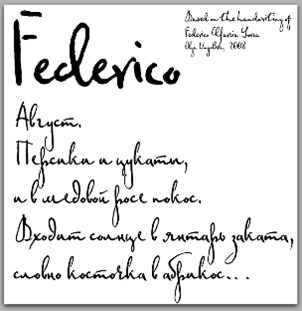 Federico
Based on the handwriting of
Federico García Lorca
2008
Август.
Персики и цукаты,
и в медовой росе покос.
Входит солнце в янтарь заката,
словно косточка в абрикос...